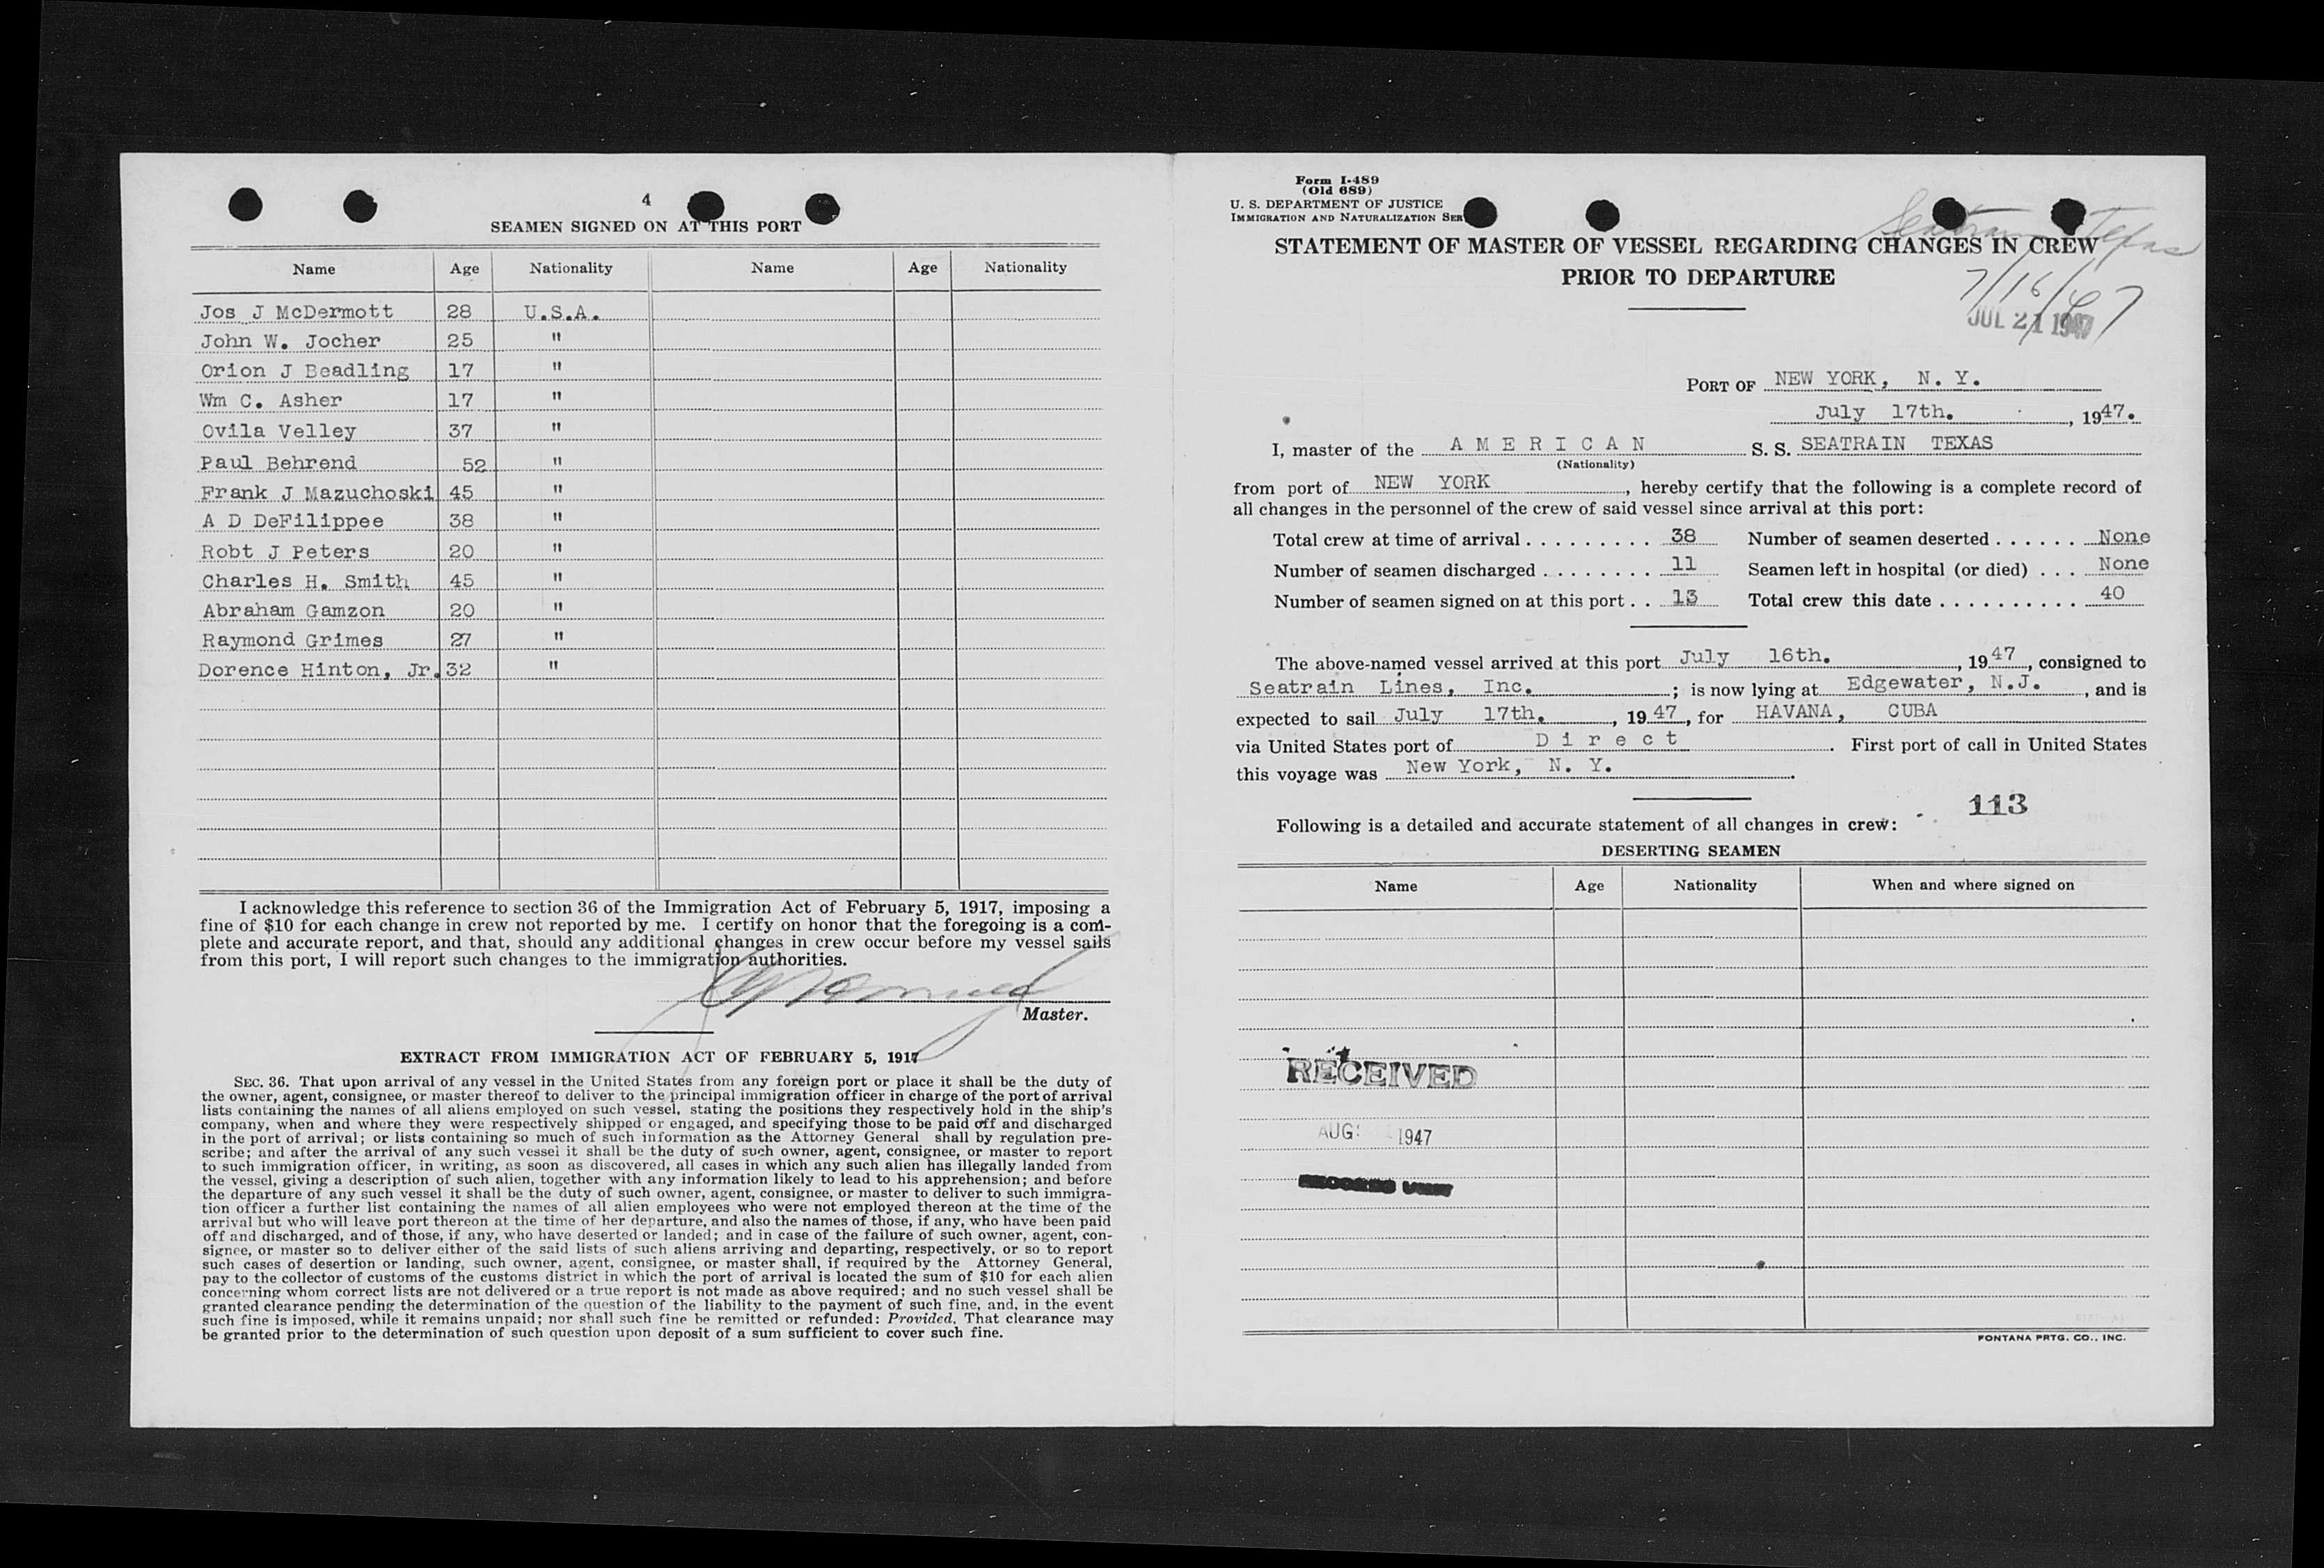 4
SEAMEN SIGNED ON AT THIS PORT
Name Age Nationality Name Age Nationality
Jos J McDermott 28 U.S.A.
John W. Jocher 25 "
Orion J Beadling 17 "
Wm C. Asher 17 "
Ovila Velley 37 "
Paul Behrend 52 "
Frank J Mazuchoski 45 "
A D DeFilippee 38 "
Robt J Peters 20 "
Charles H. Smith 45 "
Abraham Gamzon 20 "
Raymond Grimes 27 "
Dorence Hinton, Jr. 32 "
I acknowledge this reference to section 36 of the Immigration Act of February 5, 1917, imposing a
fine of $10 for each change in crew not reported by me. I certify on honor that the foregoing is a com-
plete and accurate report, and that, should any additional changes in crew occur before my vessel sails
from this port, I will report such changes to the immigration authorities.
Master.
EXTRACT FROM IMMIGRATION ACT OF FEBRUARY 5, 1917
SEC. 36. That upon arrival of any vessel in the United States from any foreign port or place it shall be the duty of
the owner, agent, consignee, or master thereof to deliver to the principal immigration officer in charge of the port of arrival
lists containing the names of all aliens employed on such vessel, stating the positions they respectively hold in the ship's
company, when and where they were respectively shipped or engaged, and specifying those to be paid off and discharged
in the port of arrival; or lists containing so much of such information as the Attorney General shall by regulation pre-
scribe; and after the arrival of any such vessel it shall be the duty of such owner, agent, consignee, or master to report
to such immigration officer, in writing, as soon as discovered, all cases in which any such alien has illegally landed from
the vessel, giving a description of such alien, together with any information likely to lead to his apprehension; and before
the departure of any such vessel it shall be the duty of such owner, agent, consignee, or master to deliver to such immigra-
tion officer a further list containing the names of all alien employees who were not employed thereon at the time of the
arrival but who will leave port thereon at the time of her departure, and also the names of those, if any, who have been paid
off and discharged, and of those, if any, who have deserted or landed; and in case of the failure of such owner, agent, con-
signee, or master so to deliver either of the said lists of such aliens arriving and departing, respectively, or so to report
such cases of desertion or landing, such owner, agent, consignee, or master shall, if required by the Attorney General,
pay to the collector of customs of the customs district in which the port of arrival is located the sum of $10 for each alien
concerning whom correct lists are not delivered or a true report is not made as above required; and no such vessel shall be
granted clearance pending the determination of the question of the liability to the payment of such fine, and, in the event
such fine is imposed, while it remains unpaid; nor shall such fine be remitted or refunded: Provided, That clearance may
be granted prior to the determination of such question upon deposit of a sum sufficient to cover such fine.
Form I-489
(Old 689)
U. S. DEPARTMENT OF JUSTICE
IMMIGRATION AND NATURALIZATION SER
Seatrain Texas
STATEMENT OF MASTER OF VESSEL REGARDING CHANGES IN CREW
PRIOR TO DEPARTURE
7/16/47
JUL 21 1947
PORT OF NEW YORK, N. Y.
July 17th. , 1947.
I, master of the A M E R I C A N S. S. SEATRAIN TEXAS
(Nationality)
from port of NEW YORK , hereby certify that the following is a complete record of
all changes in the personnel of the crew of said vessel since arrival at this port:
Total crew at time of arrival . . . . . . . . . 38 Number of seamen deserted . . . . . . None
Number of seamen discharged . . . . . . . . 11 Seamen left in hospital (or died) . . . None
Number of seamen signed on at this port . . 13 Total crew this date . . . . . . . . . . 40
The above-named vessel arrived at this port July 16th. , 1947 , consigned to
Seatrain Lines, Inc. ; is now lying at Edgewater, N.J. , and is
expected to sail July 17th. , 1947 , for HAVANA, CUBA
via United States port of D i r e c t . First port of call in United States
this voyage was New York, N. Y. .
113
Following is a detailed and accurate statement of all changes in crew:
DESERTING SEAMEN
Name Age Nationality When and where signed on
RECEIVED
AUG 1947
FONTANA PRTG. CO., INC.